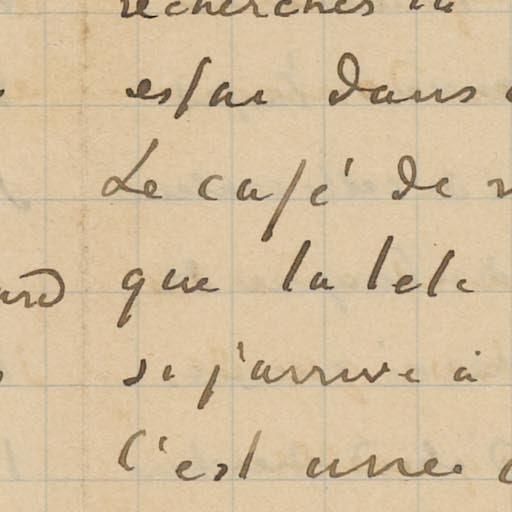 recherches la
dans
Le café de
que la tete
si j'arrive à
C'est une